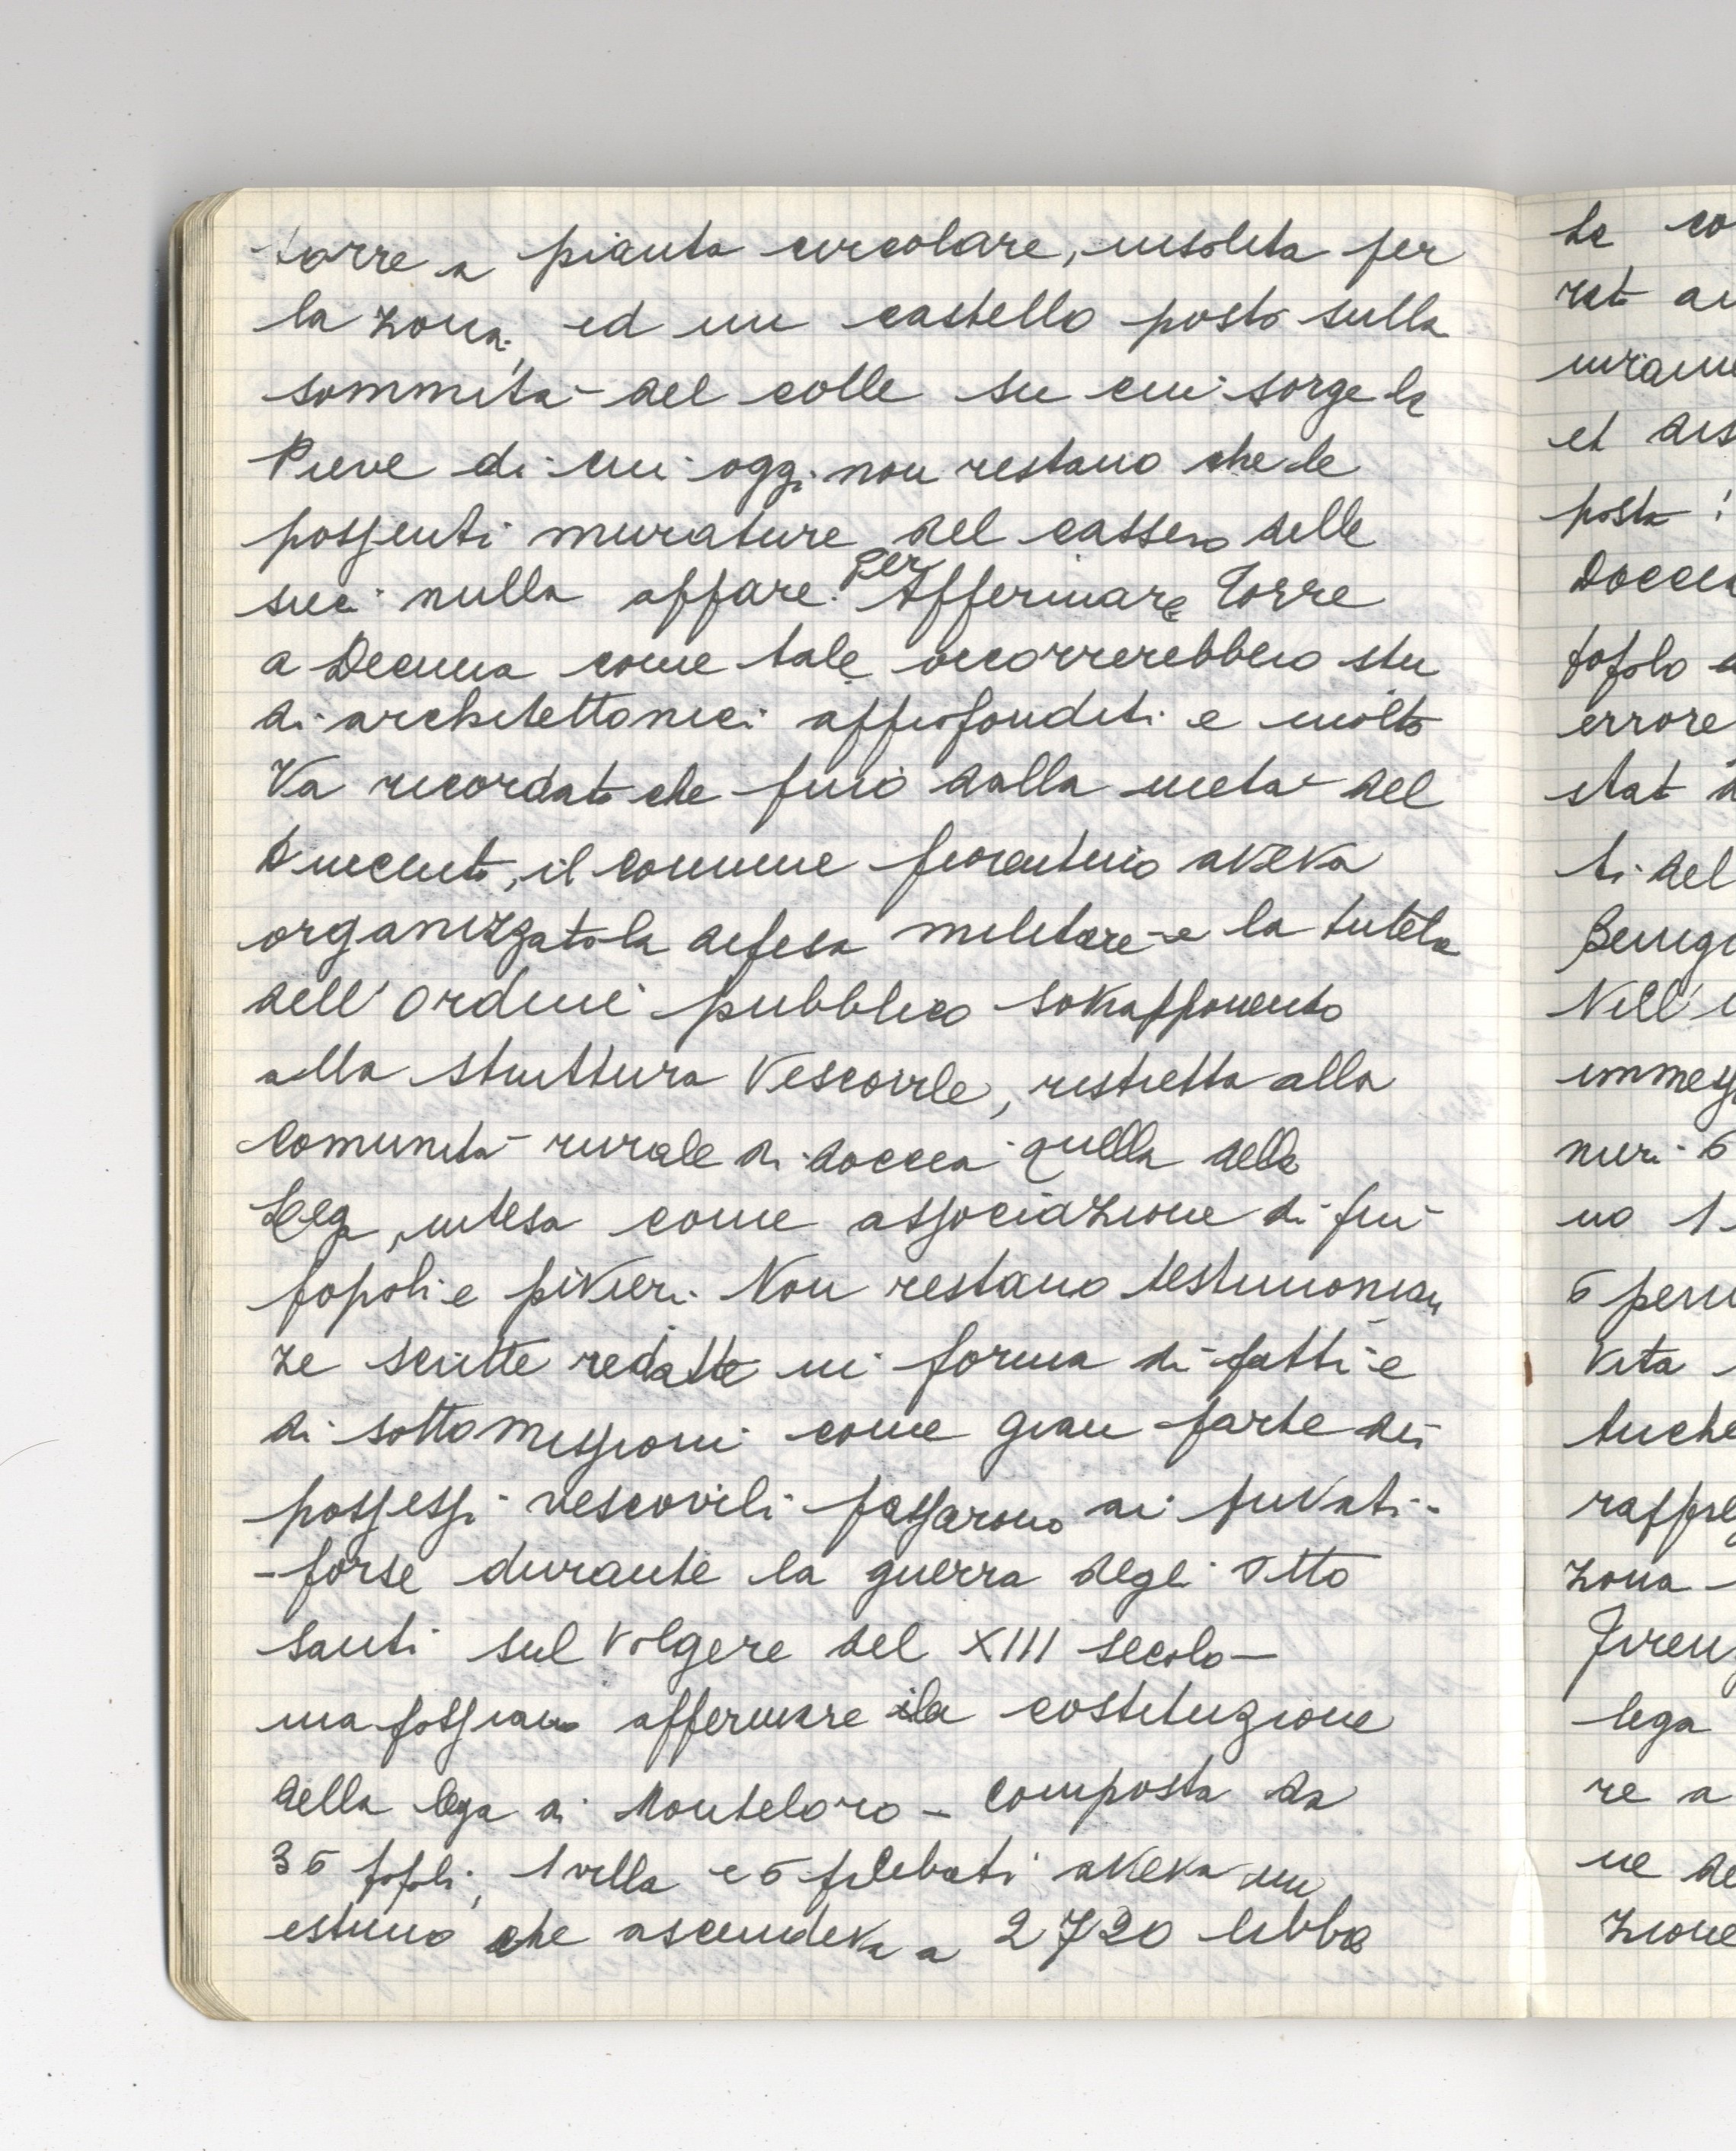 torre a pianta circolare, insolita per
la zona, ed un castello posto sulla
sommità del colle su cui sorge la
Pieve di cui oggi non restano che le
possenti murature del cassero delle
sue nulla appare. Per Affermare Torre
a Decima come tale occorrerebbero stu
di architettonici approfonditi e molto
Va ricordato che fino dalla metà del
Duecento, il comune fiorentino aveva
organizzato la difesa militare e la tutela
dell'ordine pubblico sovrapponendo
alla struttura Vescovile, ristretta alla
Comunità rurale di doccia quella della
Lega, intesa come associazione di più
popoli e pivieri. Non restano testimonian
ze scritte redatte in forma di patti e
di sottomissioni come gran parte dei
possessi vescovili passarono ai privati -
- forse durante la guerra degli Otto
santi sul volgere del XIII secolo -
ma possiamo affermare la costituzione
della lega di Monteloro - composta da
36 popoli, 1 villa e 6 plebati aveva un
estimo che ascendeva a 2720 libbre
te co
et dis
posta
Docci
popolo
errore
stat
ti del
Nell'
no 1
vita
zona
lega
re a
ne de
zione